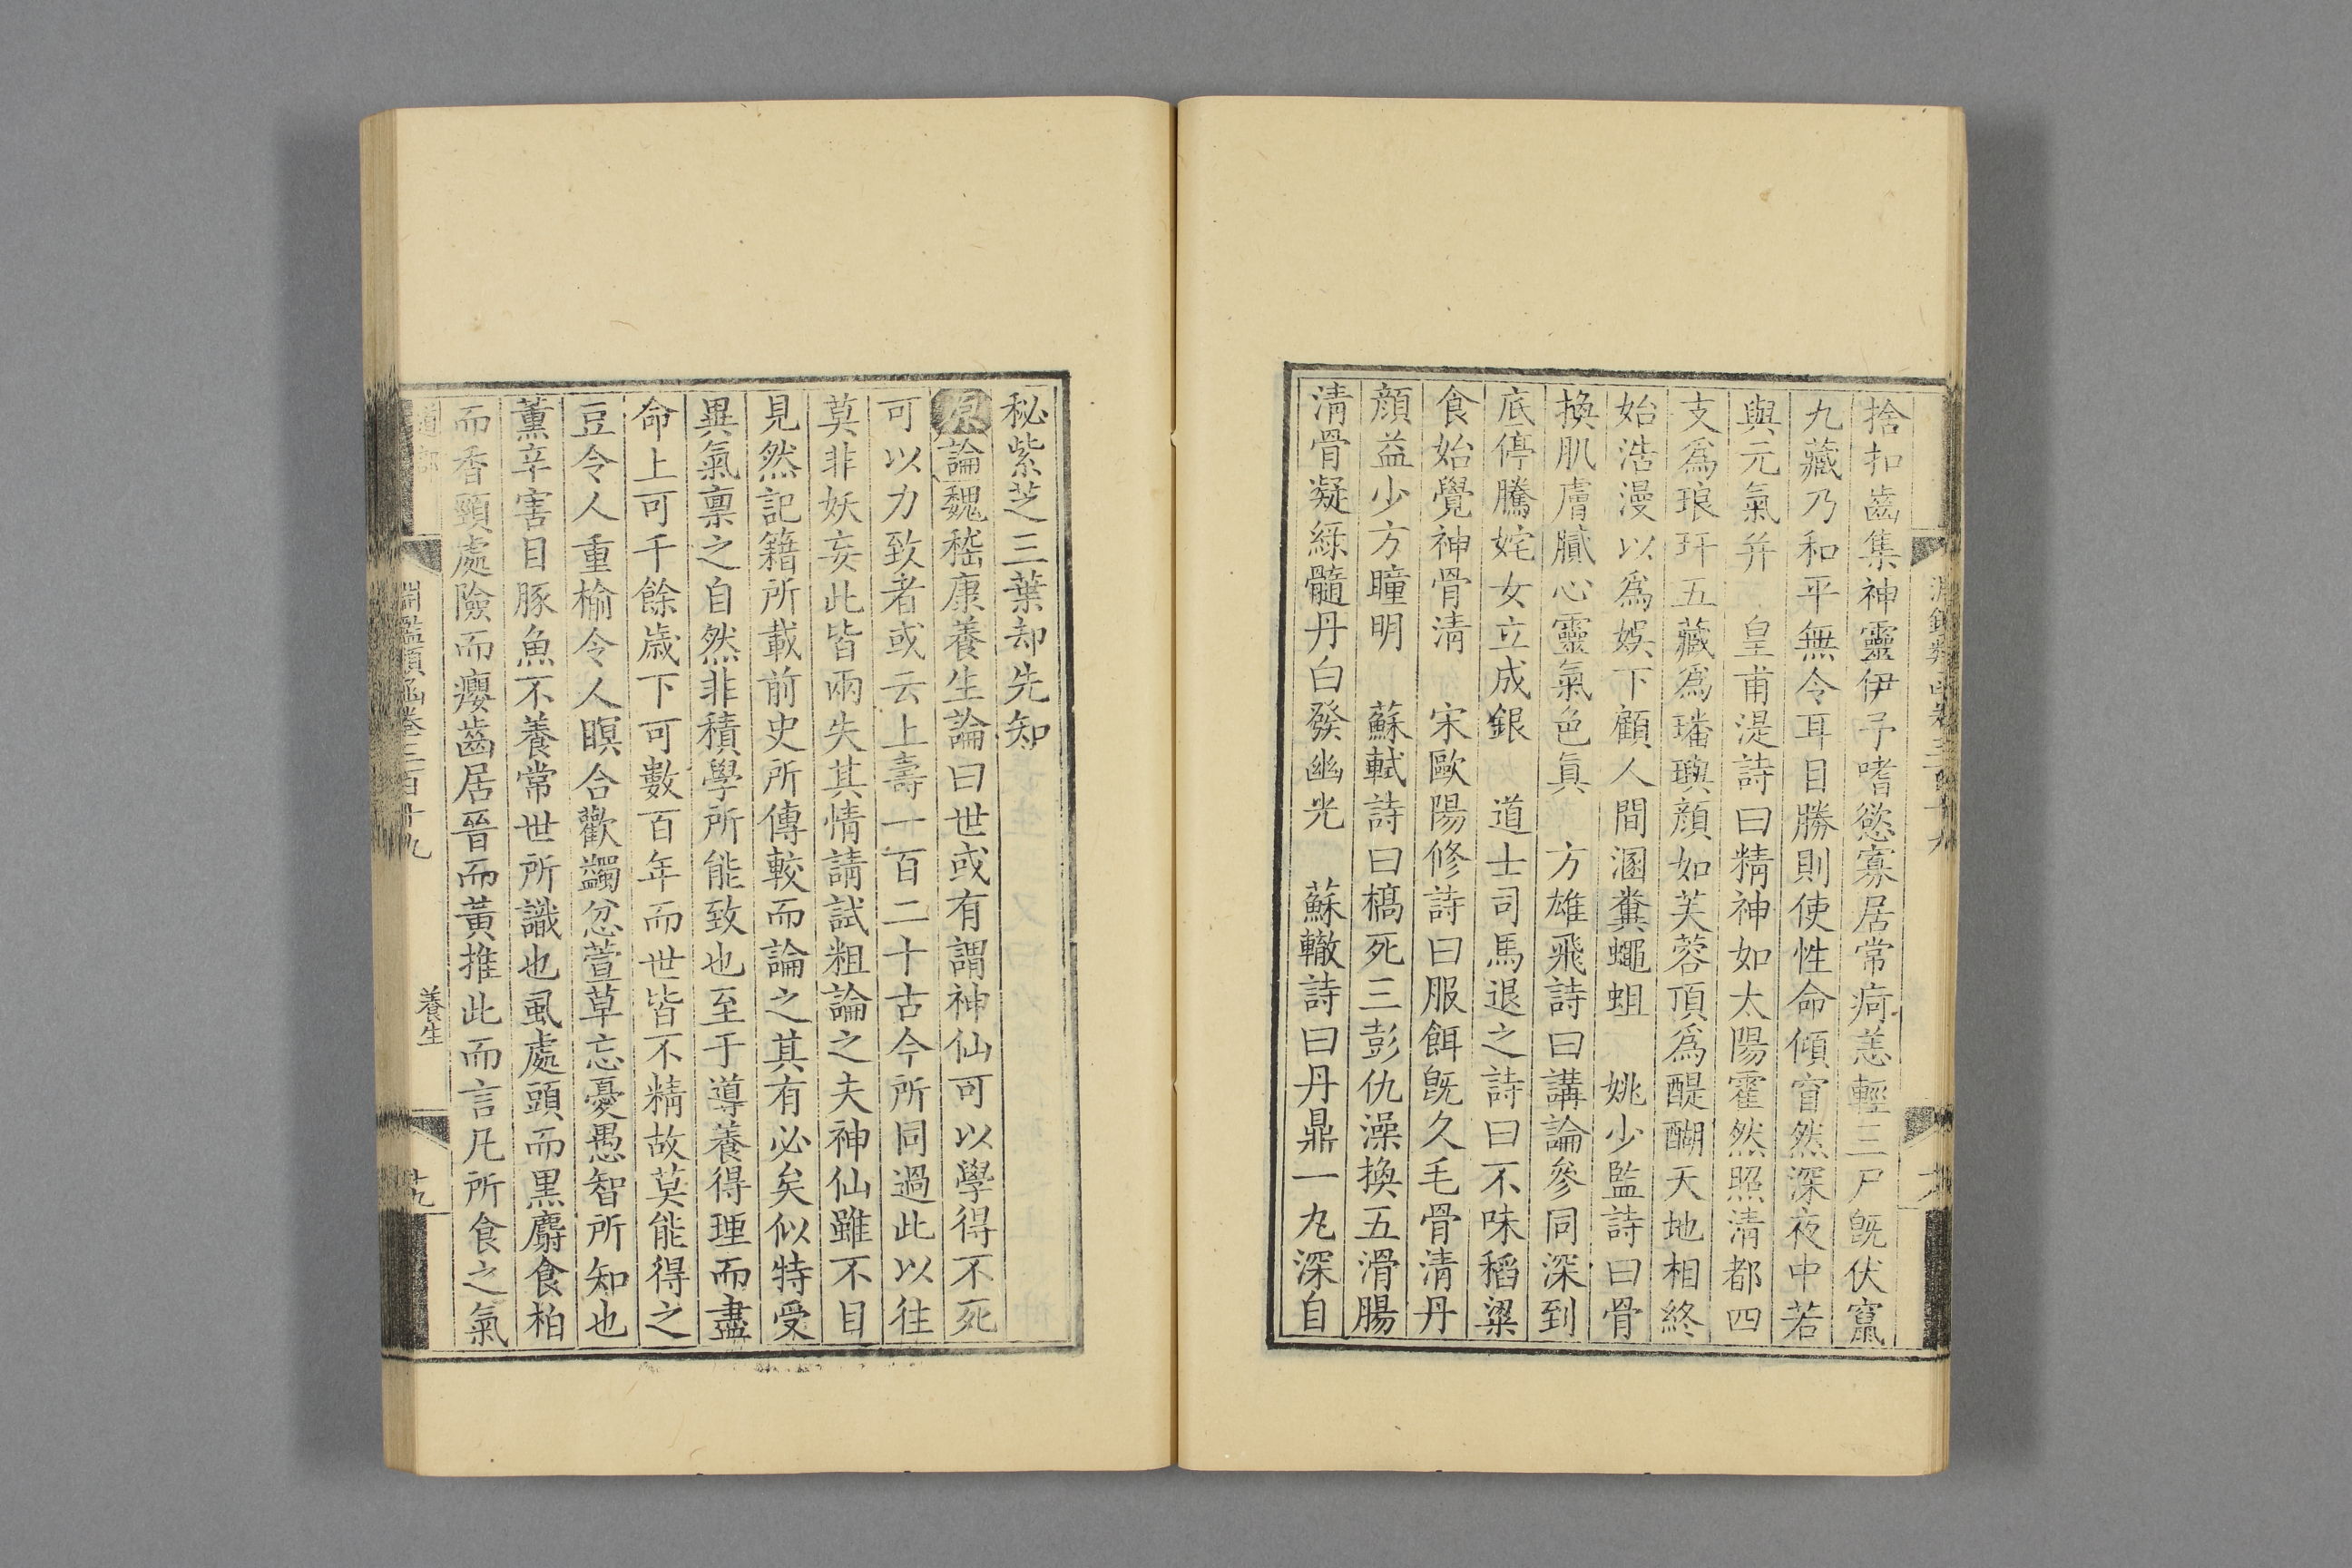 捨扣齒集神靈伊予嗜慾寡居常痾恙輕三尸旣伏竄
九藏乃和平無令耳目勝則使性命傾窅然深夜中若
與元氣幷　皇甫湜詩曰精神如太陽霍然照淸都四
支爲琅玕五藏爲璠璵顏如芙蓉頂爲醍醐天地相終
始浩漫以爲娛下顧人間溷糞蠅蛆　姚少監詩曰骨
換肌膚膩心靈氣色眞　方雄飛詩曰講論參同深到
底停騰姹女立成銀　道士司馬退之詩曰不味稻粱
食始覺神骨淸　宋歐陽修詩曰服餌旣久毛骨淸丹
顏益少方瞳明　蘇軾詩曰槁死三彭仇澡換五滑腸
淸骨凝綠髓丹白發幽光　蘇轍詩曰丹鼎一九深自
秘紫芝三葉却先知
原論魏嵇康養生論曰世或有謂神仙可以學得不死
可以力致者或云上壽一百二十古今所同過此以往
莫非妖妄此皆兩失其情請試粗論之夫神仙雖不目
見然記籍所載前史所傳較而論之其有必矣似特受
異氣稟之自然非積學所能致也至于導養得理而盡
命上可千餘歲下可數百年而世皆不精故莫能得之
豆令人重榆令人瞑合歡蠲忿萱草忘憂愚智所知也
薰辛害目豚魚不養常世所識也虱處頭而黑麝食柏
而香頸處險而癭齒居晉而黃推此而言凡所食之氣
道部
淵鑑類函卷三百十九
養生
十九